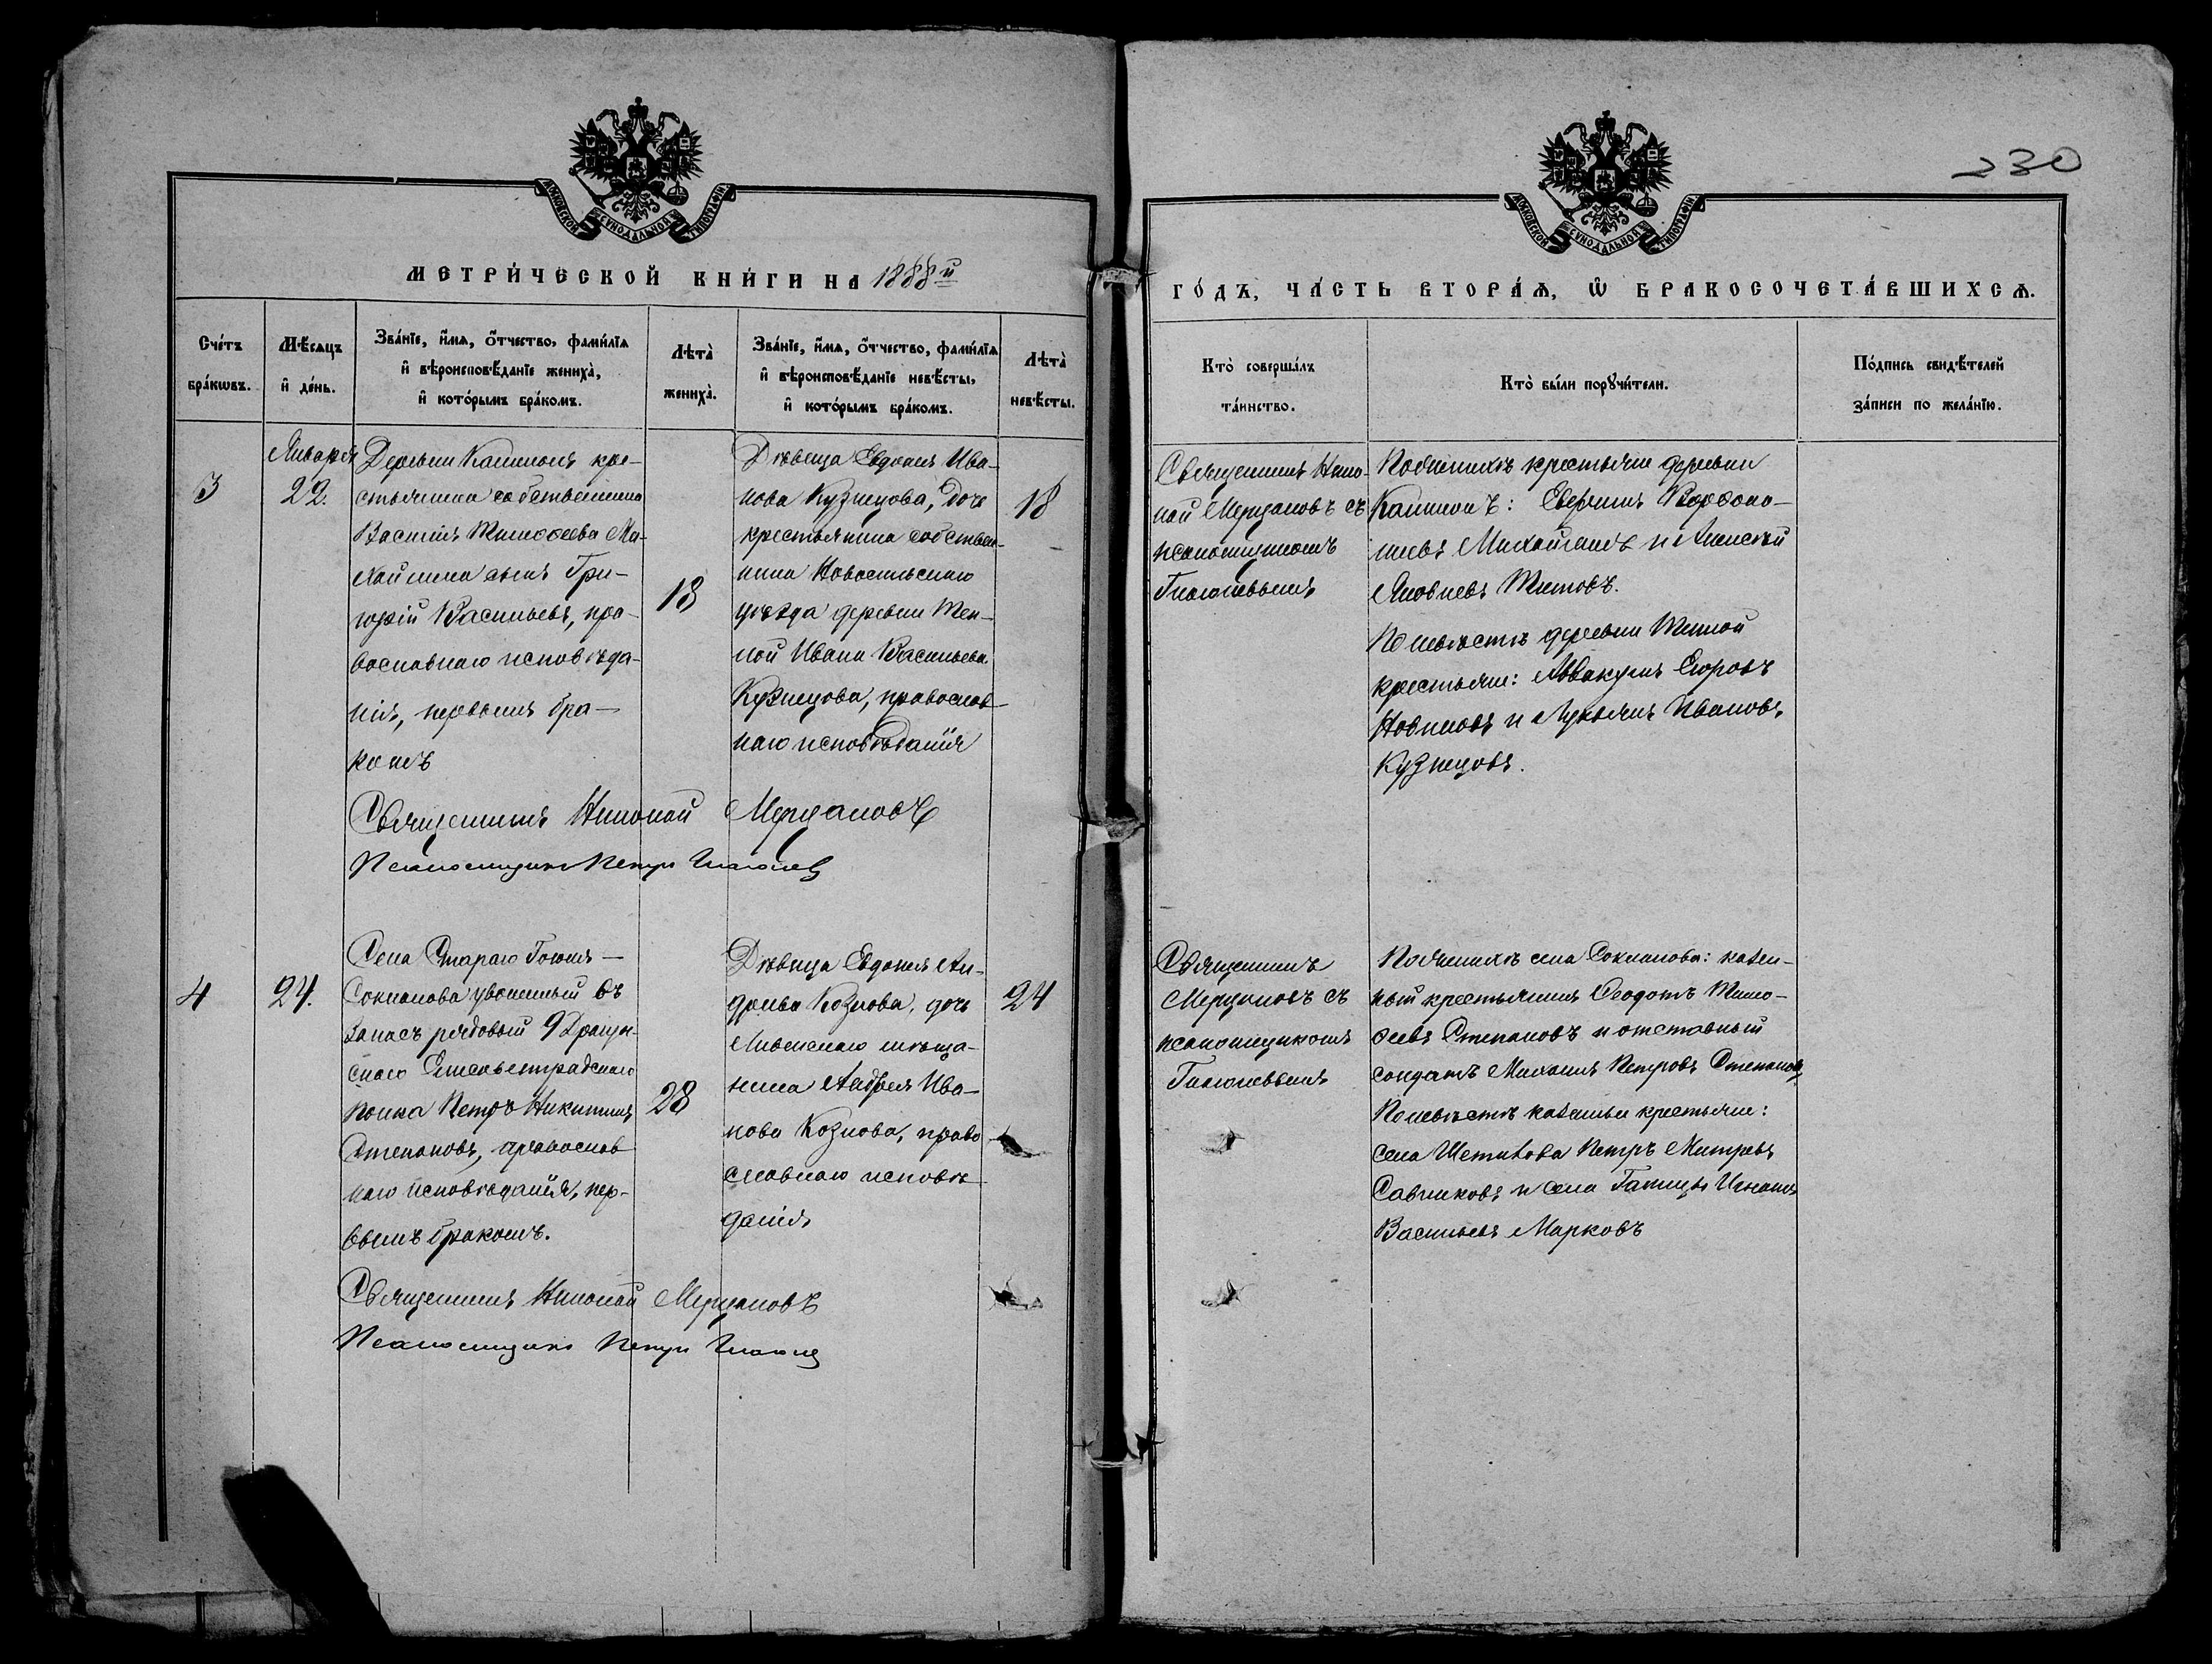 230
МОСКОВСКОЙ СѴНОДАЛЬНОЙ ТИПОГРАФІИ
МОСКОВСКОЙ СѴНОДАЛЬНОЙ ТИПОГРАФІИ
МЕТРИ́ЧЕСКОЙ КНИ́ГИ НА 1888й
ГО́ДЪ, ЧА́СТЬ ВТОРА́Ѧ, Ѡ҆ БРАКОСОЧЕТА́ВШИХСѦ.
Сче́тъ бра́кѡвъ.
Мѣ́сѧцъ и҆ де́нь.
Зва́нїе, и҆́мѧ, ѻ҆́тчество, фами́лїѧ
и҆ вѣроисповѣ́данїе жениха̀,
и҆ кото́рымъ бра́комъ.
Лѣта̀ жениха̀.
Зва́нїе, и҆́мѧ, ѻ҆́тчество, фами́лїѧ
и҆ вѣроисповѣ́данїе невѣ́сты,
и҆ кото́рымъ бра́комъ.
Лѣта̀ невѣ́сты.
Кто̀ соверша́лъ
та́инство.
Кто̀ бы́ли порꙋчи́тели.
По́дпись свидѣ́телей
за́писи по жела́нїю.
3
Января
22.
Деревни кре-
стьянина собственника
Василія Тимоѳеева Ми-
хайлина сынъ Гри-
горій Васильевъ, пра-
вославнаго исповѣда-
нія, первымъ бра-
комъ
18
Дѣвица Евдокія Ива-
нова Кузнецова, дочь
крестьянина собствен-
ника Новосильскаго
уѣзда деревни Теп-
лой Ивана Васильева
Кузнецова, православ-
наго исповѣданія
18
Священникъ Нико-
лай Мерцаловъ съ
псаломщикомъ
По женихѣ крестьяне деревни
Михайлинъ и Алексѣй
Яковлевъ Титовъ.
По невѣстѣ деревни Теплой
крестьяне: Аввакумъ Егоровъ
Новиковъ и Лукьянъ Ивановъ
Кузнецовъ.
Священникъ Николай Мерцаловъ
Псаломщикъ Петръ
4
24.
Села Стараго
уволенный въ
запасъ рядовый 9 Драгун-
скаго Елисаветградскаго
полка Петръ Никитинъ
Степановъ, православ
наго исповѣданія, пер-
вымъ бракомъ.
28
Дѣвица Евдокія Ан-
дреева Козлова, дочь
Ливенскаго мѣща-
нина Андрея Ива-
нова Козлова, право
славнаго исповѣ
данія
24
Священникъ
Мерцаловъ съ
псаломщикомъ
По женихѣ села казен-
ный крестьянинъ Ѳеодотъ Тимо-
ѳеевъ Степановъ и отставный
солдатъ Михаилъ Петровъ Степановъ
По невѣстѣ казенные крестьяне:
села Петръ
и села
Васильевъ Марковъ
Священникъ Николай Мерцаловъ
Псаломщикъ Петръ